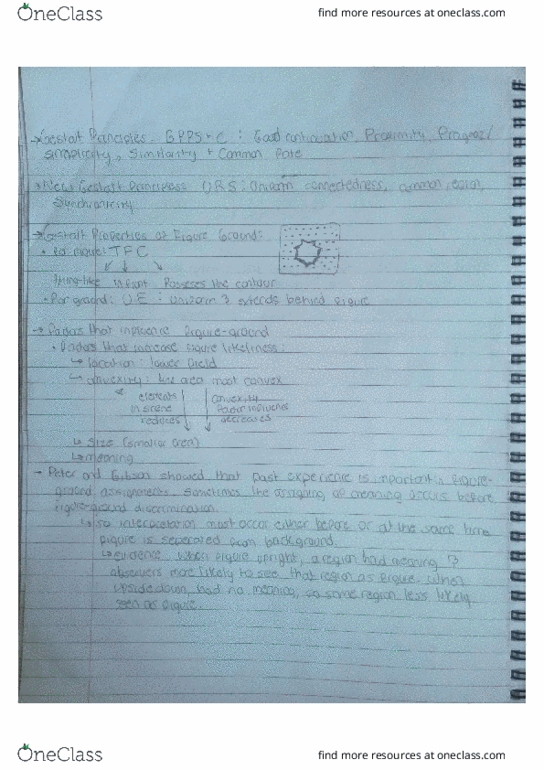 OneClass
find more resources at oneclass.com
→ Gestalt Principles. GPPS+C : Good continuation, Proximity, Pragnaz/
simplicity, Similarity + Common Fate
→ New Gestalt Principles URS: Uniform connectedness, common region,
Synchronicity
→ Gestalt Properties of Figure Ground:
• For figure: TFC
thing-like infront Posseses the contour
• For ground: U.E : Uniform & extends behind figure
→ Factors that influence figure-ground
• Factors that increase figure likeliness:
↳ location : lower field
↳ convexity : the area most convex
elements convexity
in scene factor influence
reduces decreases
↳ Size (smaller area)
↳ meaning
- Peter and Gibson showed that past experience is important in figure-
ground assignments. Sometimes the assigning of meaning occurs before
figure-ground discrimination.
↳ so interpretation must occur either before or at the same time
figure is seperated from background.
↳ evidence: when figure upright, a region had meaning &
observers more likely to see that region as figure. When
upside down, had no meaning, so same region less likely
seen as figure.
OneClass
find more resources at oneclass.com